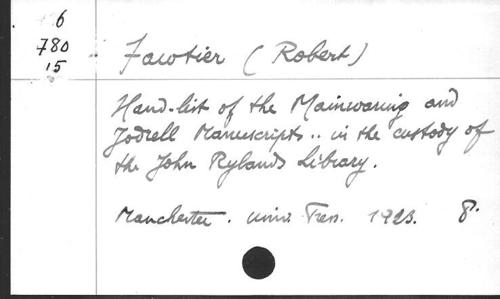 6
780
15
Fawtier (Robert)
Hand-list of the Mainwaring and
Jodrell Manuscripts.. in the custody of
the John Rylands Library.
Manchester. Univ. Press. 1923. 8°.